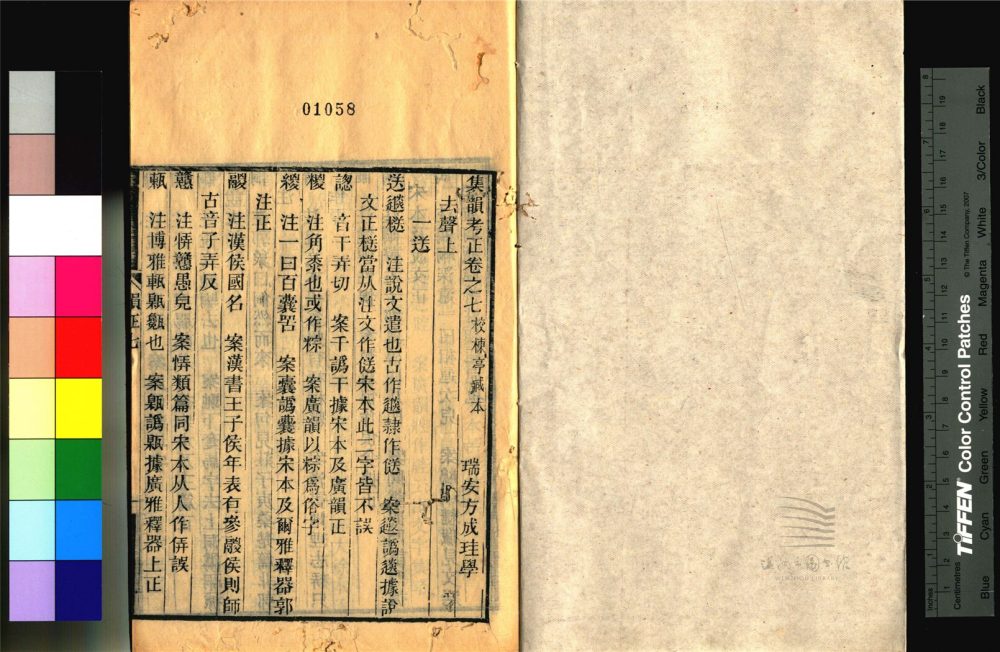 01058
集韻考正卷之七 校楝亭鋟本 瑞安方成珪學
去聲上
一送
注說文遣也古作 隸作 案 譌 據說
文正 當从注文作 宋本此二字皆不誤
音千弄切 案千譌干據宋本及廣韻正
注角黍也或作粽 案廣韻以粽爲俗字
注一曰百囊罟 案囊譌 據宋本及爾雅釋器郭
注正
注漢侯國名 案漢書王子侯年表有參 侯則師
古音子弄反
戇 注 戇愚皃 案 類篇同宋本从人作 誤
注博雅 也 案 譌 據廣雅釋器上正
韻正七
溫州市圖書館
WENZHOU LIBRARY
TIFFEN Color Control Patches
© The Tiffen Company, 2007
Inches
Centimetres
Blue
Cyan
Green
Yellow
Red
Magenta
White
3/Color
Black